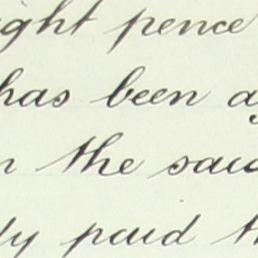 ight pence
has been a
n the said
ly paid t